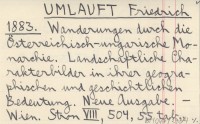 UMLAUFT Friedrich
1883. Wanderungen durch die
Österreichisch-ungarische Mo-
narchie. Landschaftliche Cha-
rakterbilder in ihrer geogra-
phischen und geschichtlichen
Bedeutung. Neue Ausgabe. —
Wien. Stron VIII, 504, 55 ryc.